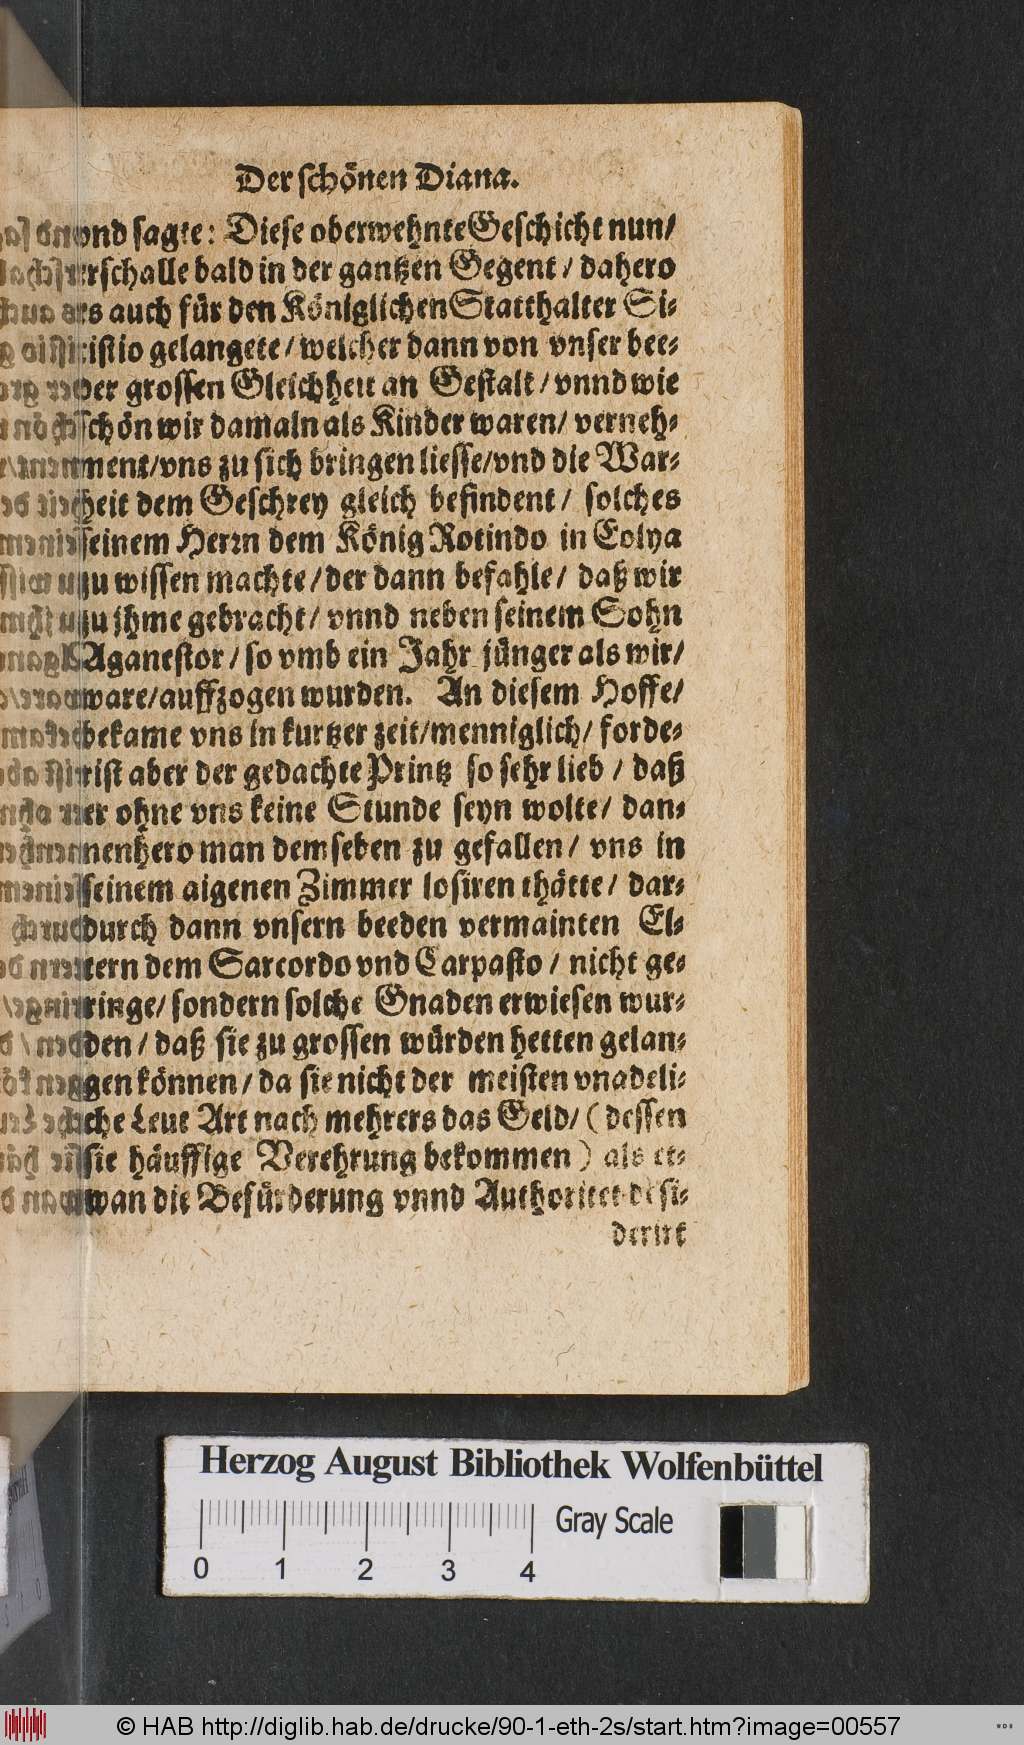 Der schönen Diana.
vnd sagte: Diese oberwehnte Geschicht nun/
erschalle bald in der gantzen Gegent / dahero
es auch für den Königlichen Statthalter Si-
ristio gelangete / welcher dann von vnser bee-
der grossen Gleichheit an Gestalt / vnnd wie
schön wir damaln als Kinder waren / verneh-
ment/vns zu sich bringen liesse/vnd die War-
heit dem Geschrey gleich befindent / solches
seinem Herrn dem König Rotindo in Colya
zu wissen machte / der dann befahle / daß wir
zu jhme gebracht / vnnd neben seinem Sohn
Aganestor / so vmb ein Jahr jünger als wir/
ware/auffzogen wurden. An diesem Hoffe/
bekame vns in kurtzer zeit/menniglich/ forde-
rist aber der gedachte Printz so sehr lieb / daß
er ohne vns keine Stunde seyn wolte / dan-
nenhero man demseben zu gefallen / vns in
seinem aigenen Zimmer losiren thätte / dar-
durch dann vnsern beeden vermainten El-
tern dem Sarcordo vnd Carpasto / nicht ge-
ringe/ sondern solche Gnaden erwiesen wur-
den / daß sie zu grossen würden hetten gelan-
gen können / da sie nicht der meisten vnadeli-
che Leut Art nach mehrers das Geld/ (dessen
sie häuffige Verehrung bekommen) als et-
wan die Befürderung vnnd Authoritet desi-
derirt
Herzog August Bibliothek Wolfenbüttel
0 1 2 3 4
Gray Scale
© HAB http://diglib.hab.de/drucke/90-1-eth-2s/start.htm?image=00557